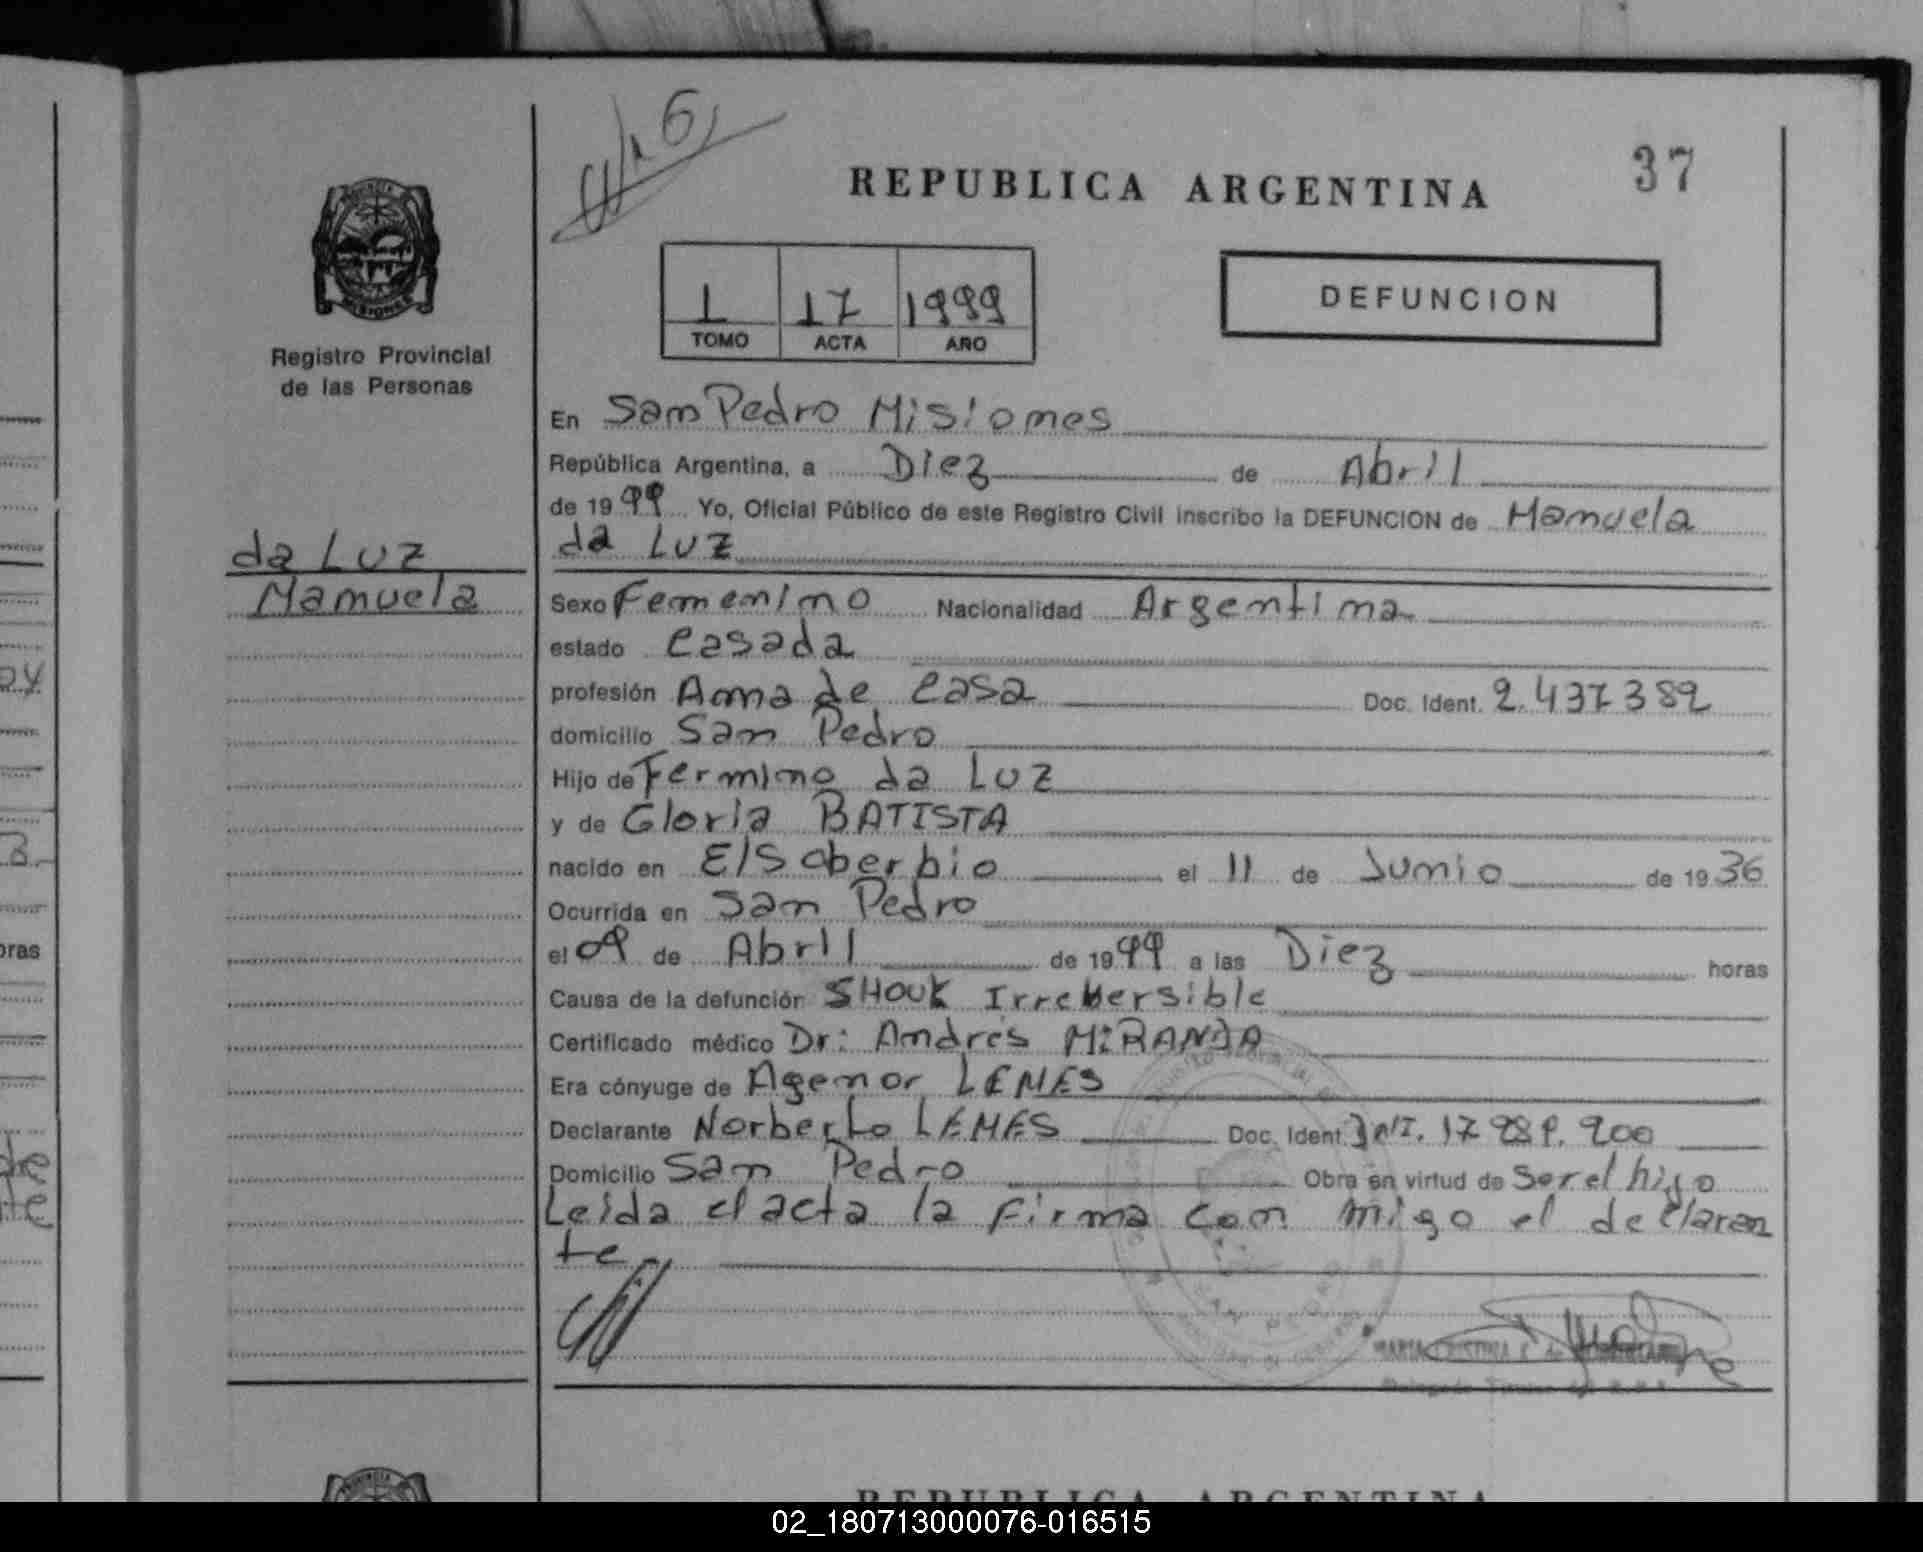 37
REPUBLICA ARGENTINA
1 17 1999
TOMO ACTA AÑO
DEFUNCION
Registro Provincial
de las Personas
En San Pedro Misiones
República Argentina, a Diez de Abril
de 1999 Yo, Oficial Público de este Registro Civil inscribo la DEFUNCION de Manuela
da Luz
da Luz
Manuela
Sexo Femenino Nacionalidad Argentina
estado Casada
profesión Ama de Casa Doc. Ident. 2.437382
domicilio San Pedro
Hijo de Fermino da Luz
y de Gloria BATISTA
nacido en El Soberbio el 11 de Junio de 1936
Ocurrida en San Pedro
el 09 de Abril de 1999 a las Diez horas
Causa de la defunción SHOUK Irrebersible
Certificado médico Dr: Andrés MiRANDA
Era cónyuge de Agenor LEMES
Declarante Norberto LEMES Doc. Ident. DNI. 17
Domicilio San Pedro Obra en virtud de Ser el hijo
Leida el acta la firma con migo el declaran
te
oras
de
te
REPUBLICA ARGENTINA
02_180713000076-016515